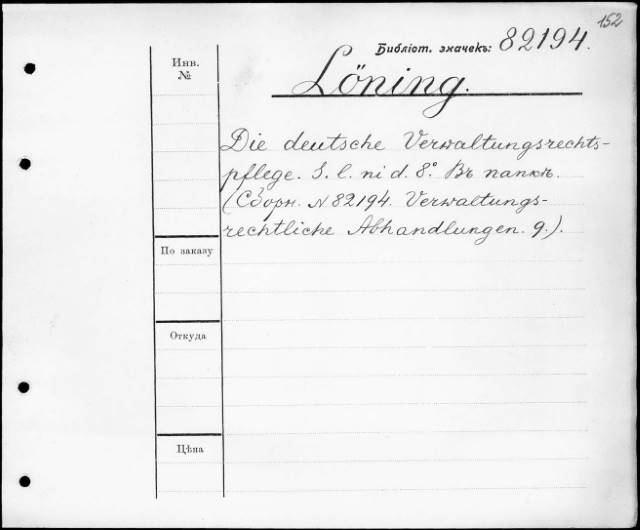 152
Библіот. значекъ: 82194.
Löning.
Инв.
№
Die deutsche Verwaltungsrechts-
pflege. S. l. ni d. 8°. Въ папкѣ.
(Сборн. № 82194. Verwaltungs-
rechtliche Abhandlungen. 9.).
По заказу
Откуда
Цѣна